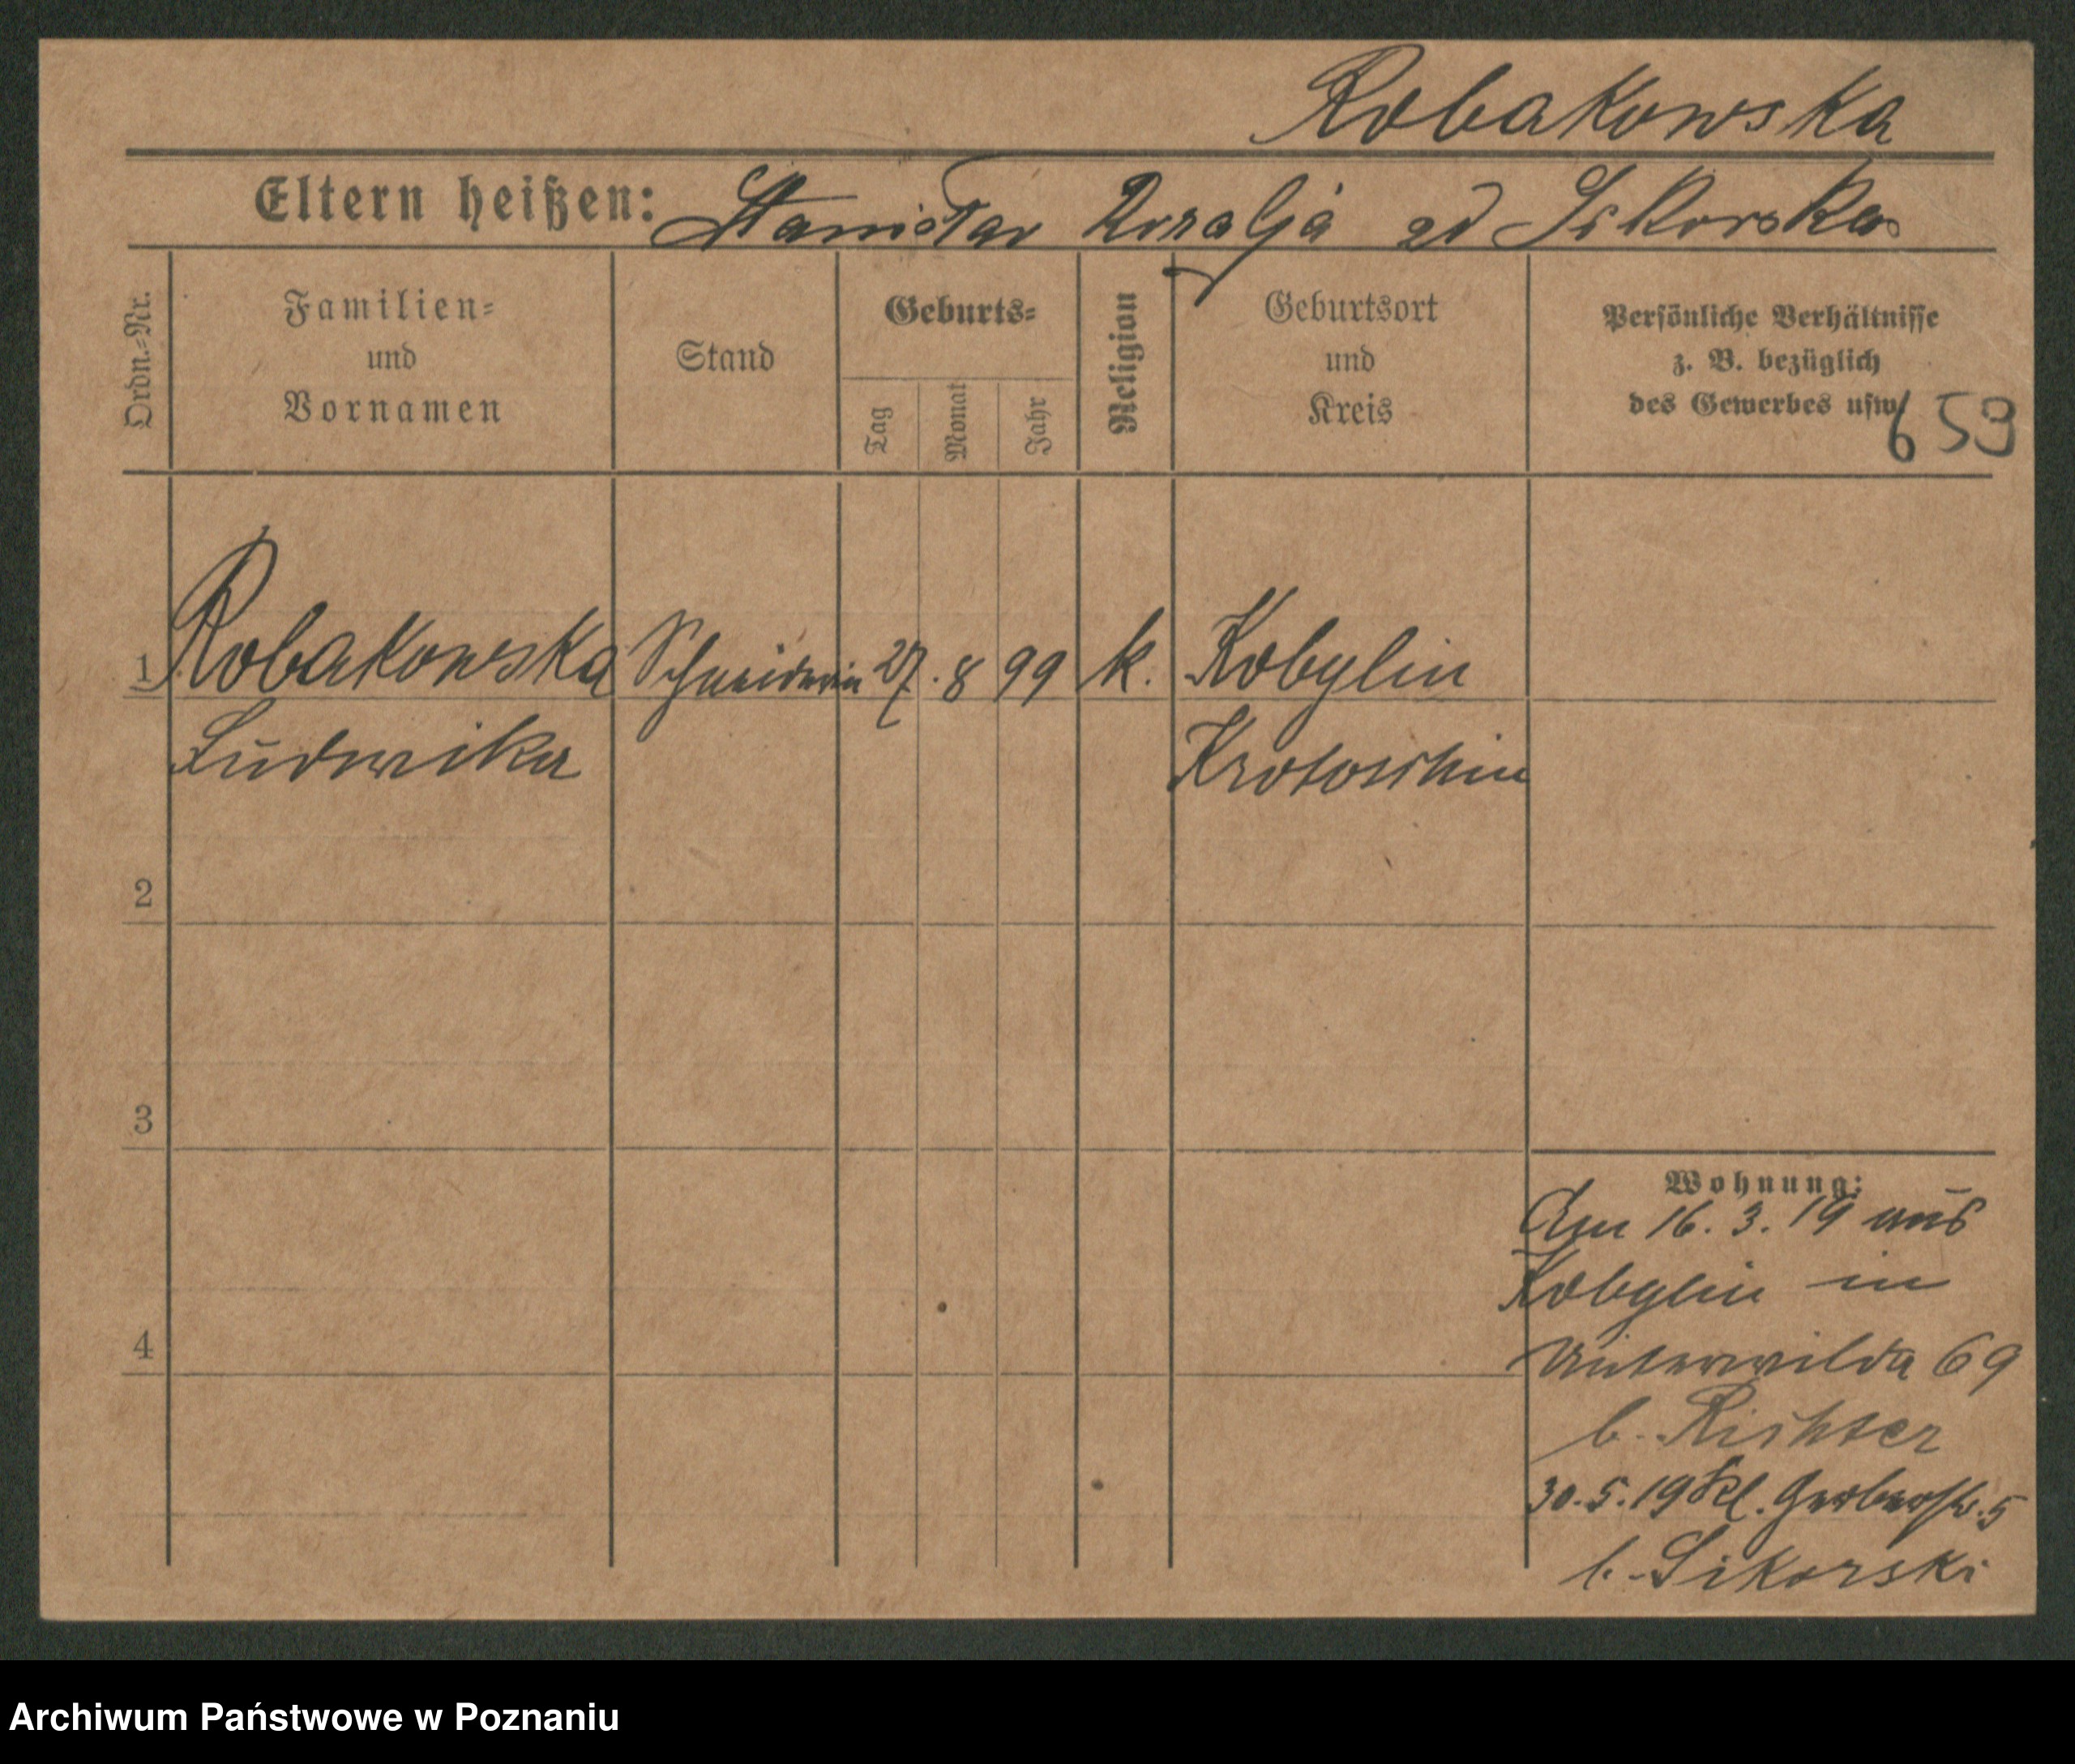 Robakowska
Eltern heißen: Stanisław Rozalja zd Sikorska
Ordn.-Nr.
Familien-
und
Vornamen
Stand
Geburts-
Tag
Monat
Jahr
Religion
Geburtsort
und
Kreis
Persönliche Verhältnisse
z. B. bezüglich
des Gewerbes usw.
653
1 Robakowska Schneiderin 27. 8 99 k. Kobylin
Ludwika Krotoschin
2
3
4
Wohnung:
Am 16. 3. 19 aus
Kobylin in
Unterwilda 69
b. Richter
30.5.19 Kl. Gerberstr. 5
b. Sikorski
Archiwum Państwowe w Poznaniu